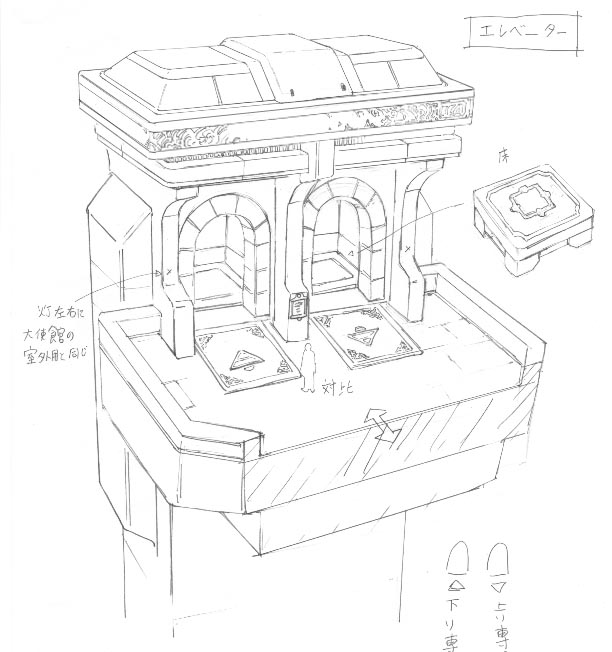 エレベーター
床
灯左右に
大使館の
室外用と同じ
対比
△下り専
▽上り専